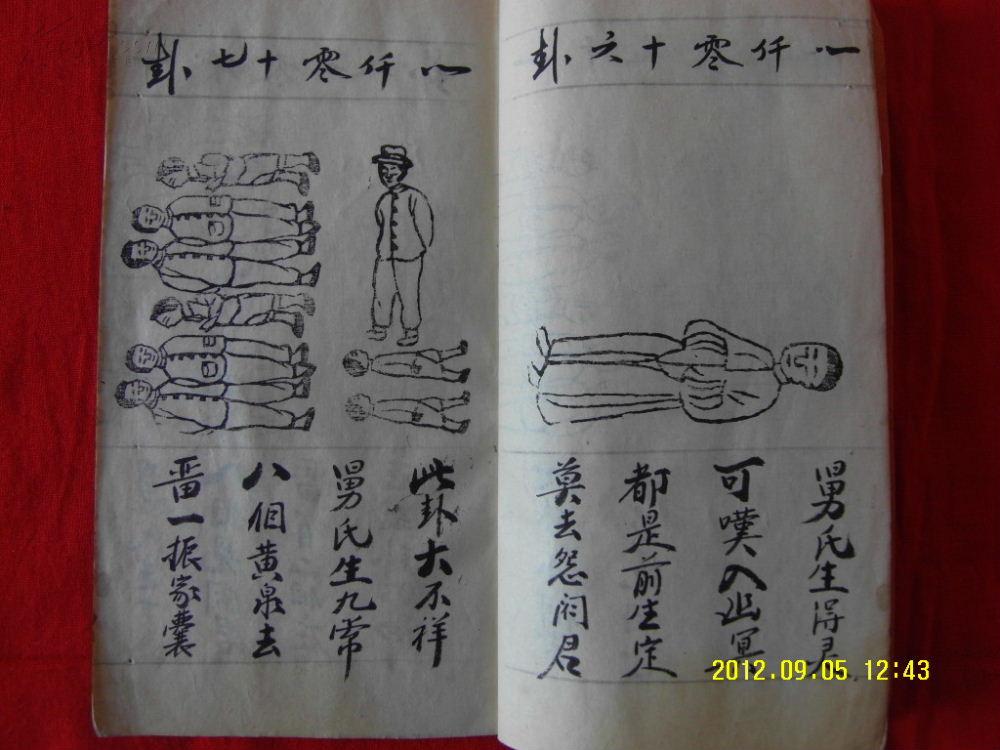 一仟零十六卦
舅氏生得君
可嘆入幽冥
都是前生定
莫去怨阎君
一仟零十七卦
此卦大不祥
舅氏生九常
八個黄泉去
畱一振家囊
2012.09.05 12:43